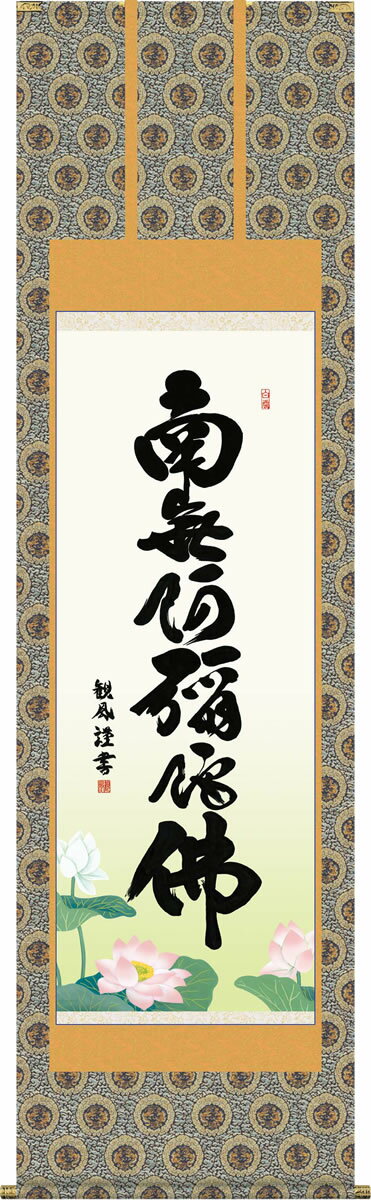 南無阿彌陀佛
観風謹書